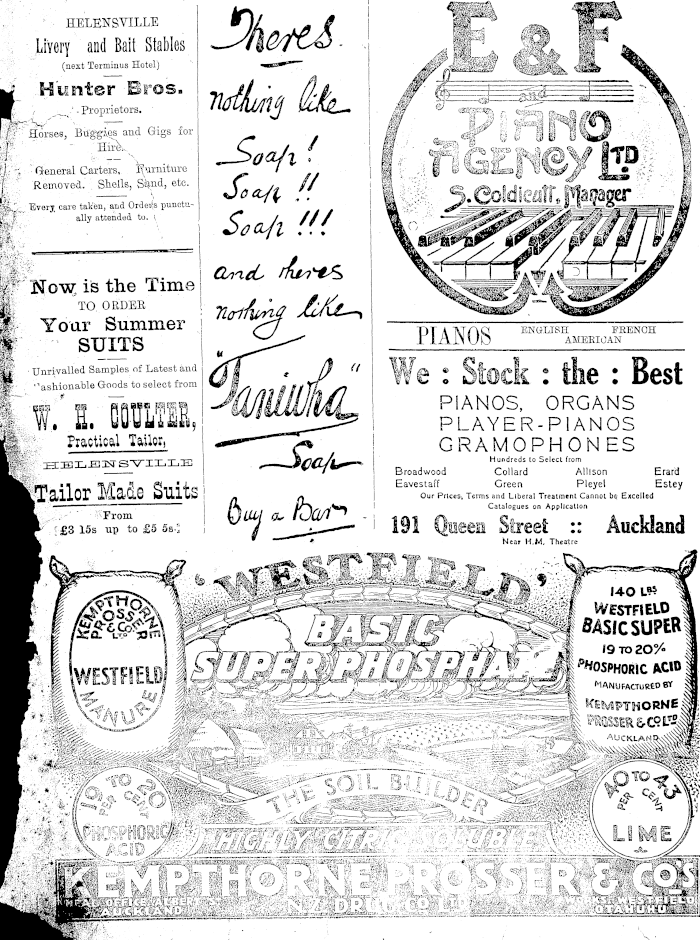 HELENSVILLE
Livery and Bait Stables
(next Terminus Hotel)
Hunter Bros.
Proprietors.
Horses, Buggies and Gigs for
Hire.
General Carters, Furniture
Removed. Shells, Sand, etc.
Every care taken, and Orders punctu-
ally attended to.
Now is the Time
TO ORDER
Your Summer
SUITS
Unrivalled Samples of Latest and
Fashionable Goods to select from
W. H. COULTER,
Practical Tailor,
HELENSVILLE
Tailor Made Suits
From
[£3 15s up to £5 5s.]
Theres
nothing like
Soap!
Soap!!
Soap!!!
and theres
nothing like
"Taniwha"
Soap
Buy a Bar
E & F
and
PIANO
AGENCY LTD
S. Coldicutt, Manager
PIANOS ENGLISH FRENCH
AMERICAN
We : Stock : the : Best
PIANOS, ORGANS
PLAYER-PIANOS
GRAMOPHONES
Hundreds to Select from
Broadwood Collard Allison Erard
Eavestaff Green Pleyel Estey
Our Prices, Terms and Liberal Treatment Cannot be Excelled
Catalogues on Application
191 Queen Street :: Auckland
Near H.M. Theatre
'WESTFIELD'
BASIC
SUPER PHOSPHATE
KEMPTHORNE
PROSSER
& CO
LTD
WESTFIELD
MANURE
140 LBS
WESTFIELD
BASIC SUPER
19 TO 20%
PHOSPHORIC ACID
MANUFACTURED BY
KEMPTHORNE
PROSSER & CO LTD
AUCKLAND
19 TO 20
PER CENT
PHOSPHORIC
ACID
THE SOIL BUILDER
HIGHLY CITRIC SOLUBLE
40 TO 43
PER CENT
LIME
KEMPTHORNE PROSSER & CO'S
N.Z. DRUG CO LTD
OFFICE ALBERT S
AUCKLAND
WORKS WESTFIELD
OTAHUHU